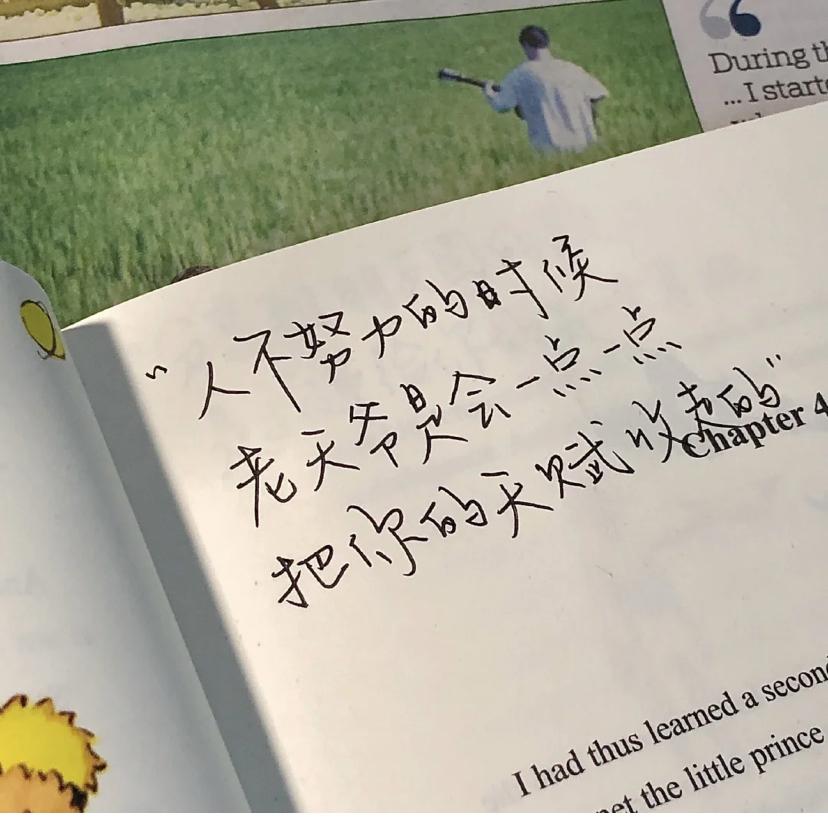 During th
... I starte
“人不努力的时候
老天爷是会一点一点
把你的天赋收走的”
Chapter 4
I had thus learned a second
met the little prince